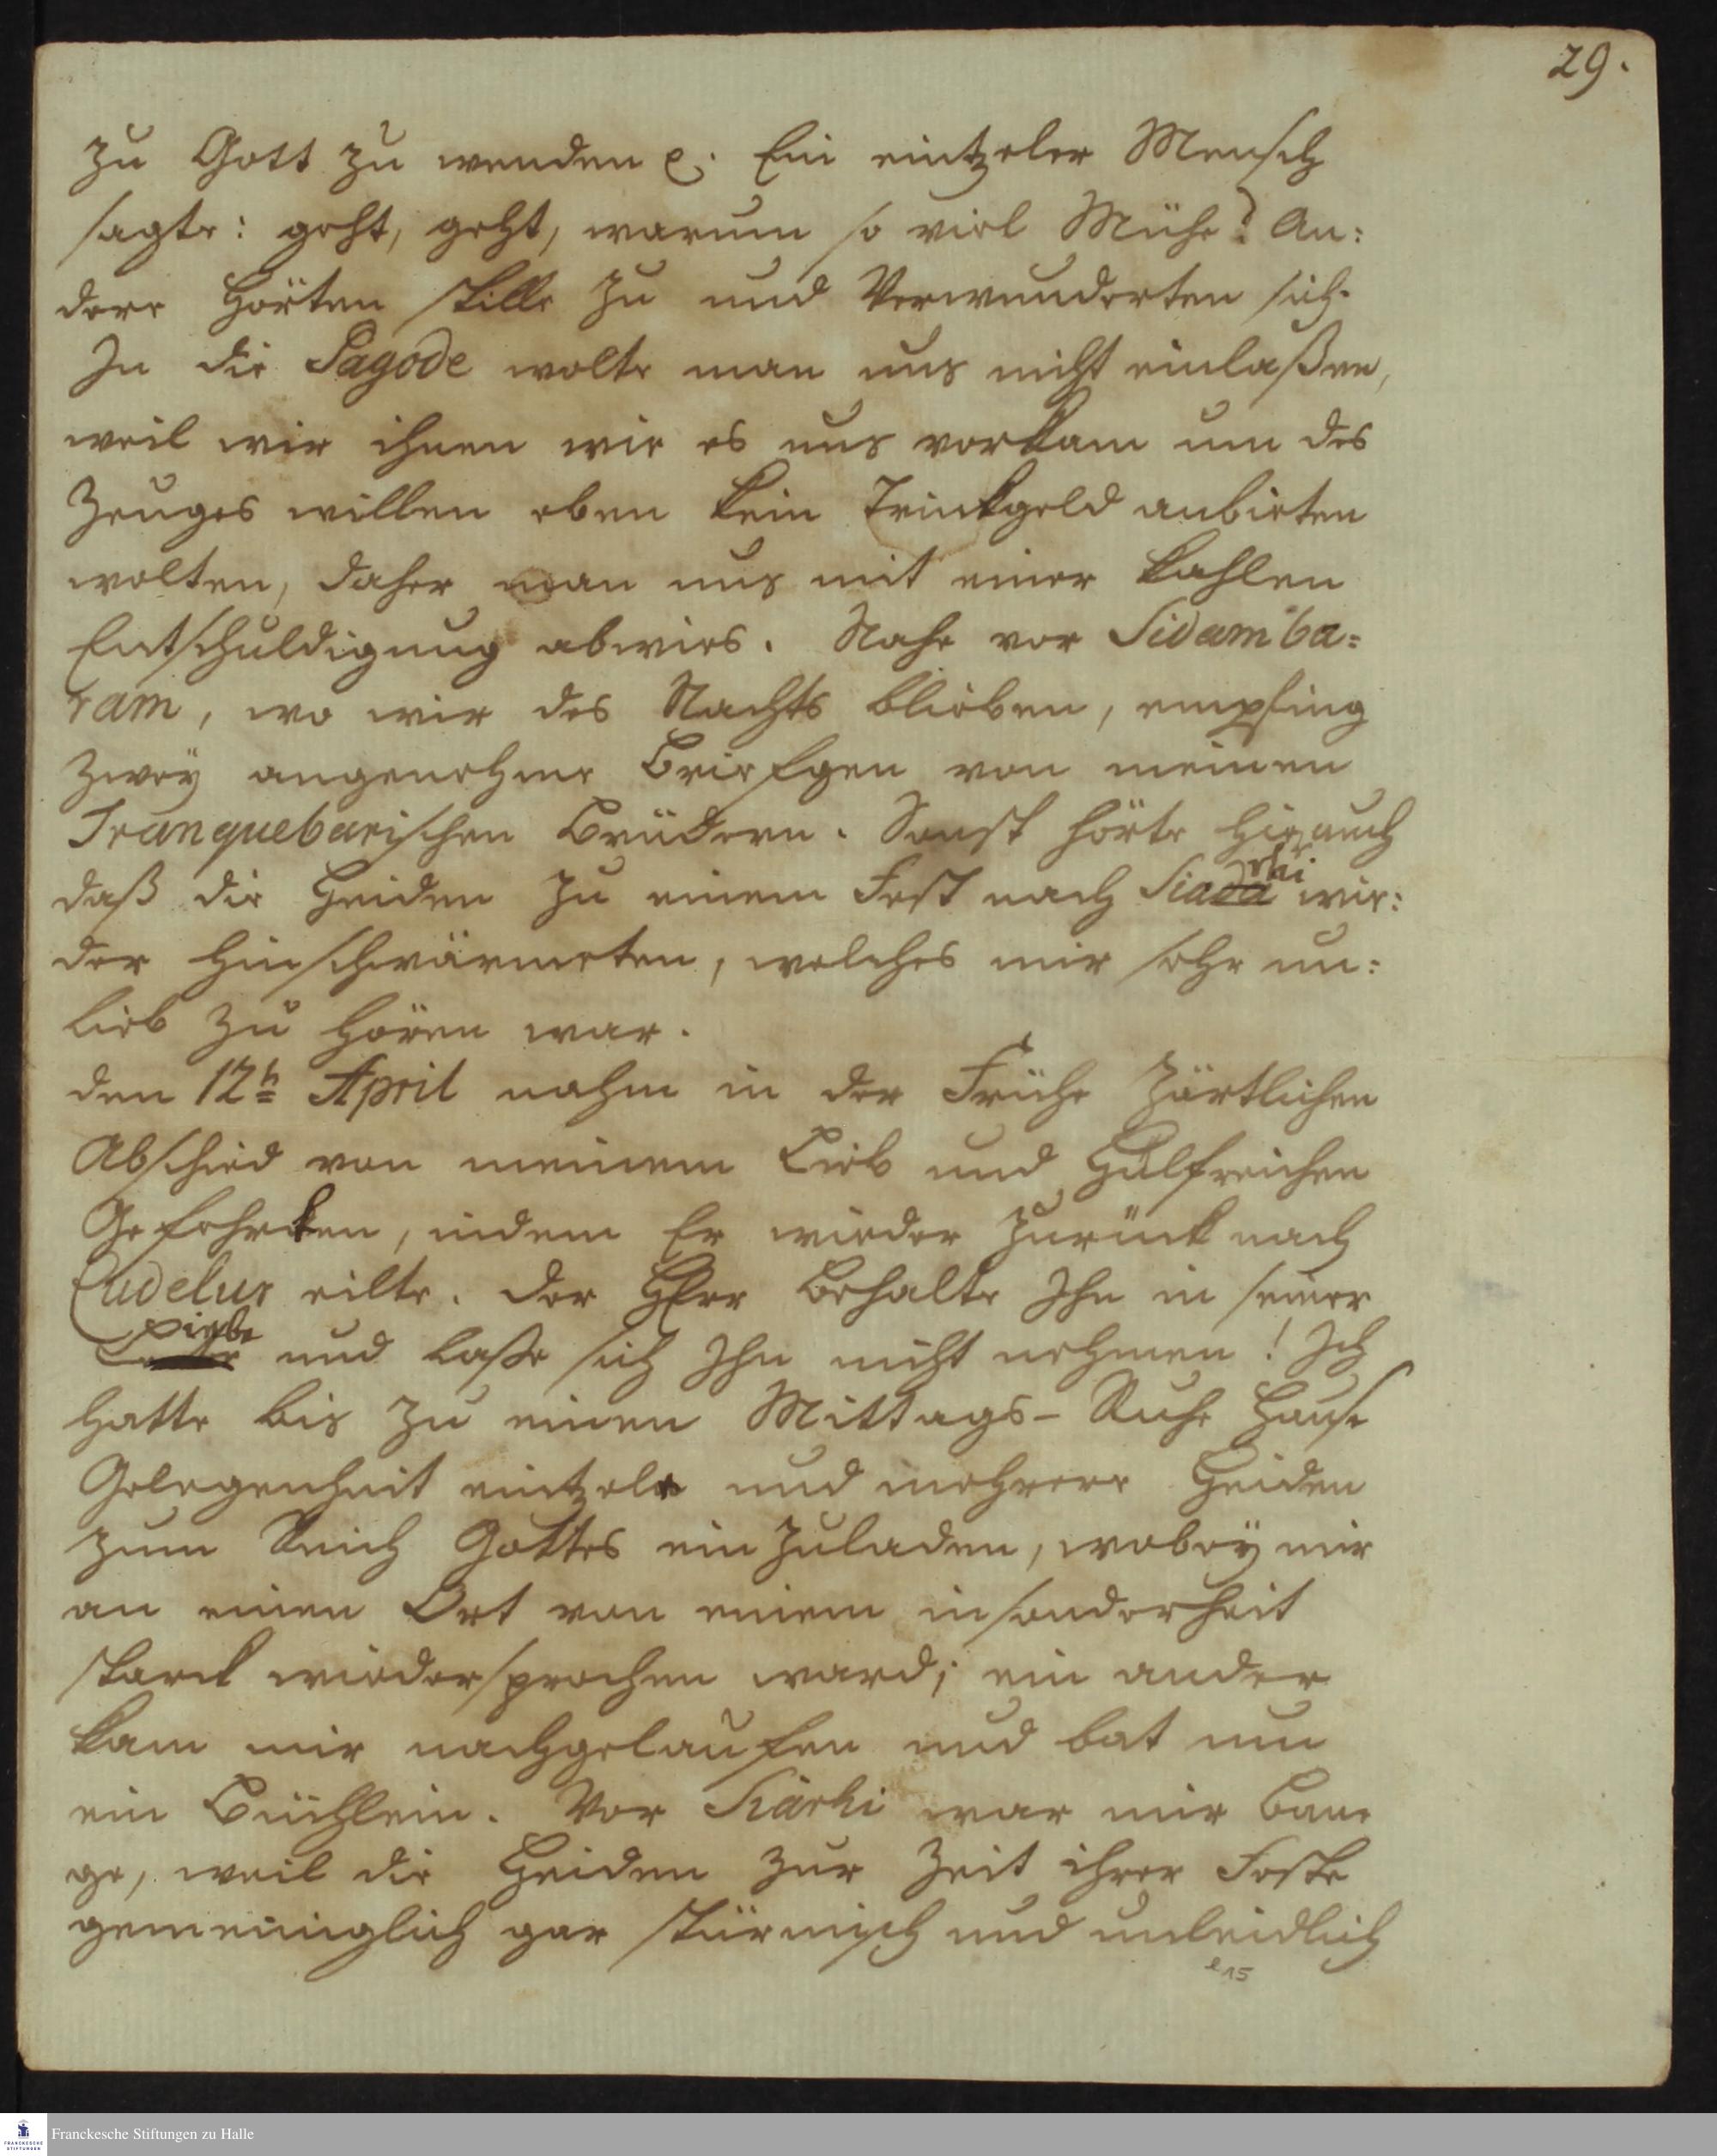 29.
zu Gott zu wenden ꝛc. Ein eintzeler Mensch
sagte: geht, geht, warum so viel Mühe? An:
dere hörten stille zu und Verwunderten sich.
In die Pagode wolte man uns nicht einlaßen,
weil wir ihnen wie es uns vorkam um des
Zeuges willen eben kein Trinkgeld anbieten
wolten, daher man uns mit einer kahlen
Entschuldigung abwies. Nahe vor Sidamba:
ram, wo wir des Nachts blieben, empfing
zwey angenehme Briefgen von meinen
Tranquebarischen Brüdern. Sonst hörte hie auch
daß die Heiden zu einem Fest nach Siada rhi wie:
der hinschwärmeten, welches mir sehr un:
lieb zu hören war.
den 12h April nahm in der Frühe zärtlichen
Abschied von meinem Lieb und Hülfreichen
Gefehrten, indem Er wieder zurück nach
Cudelur eilte. Der HErr behalte Ihn in seiner
Liebe und laße sich Ihn nicht nehmen! Ich
hatte bis zu einen Mittags-Ruhe Hause
Gelegenheit eintzele und mehrere Heiden
zum Reich Gottes ein zuladen, wobey mir
an einen Ort von einem insonderheit
starck wiedersprochen ward; ein ander
kam mir nachgelaufen und bat um
ein Büchlein. Vor Siarhi war mir ban
ge, weil die Heiden zur Zeit ihrer Feste
gemeiniglich gar stürmisch und unleidlich
Franckesche Stiftungen zu Halle